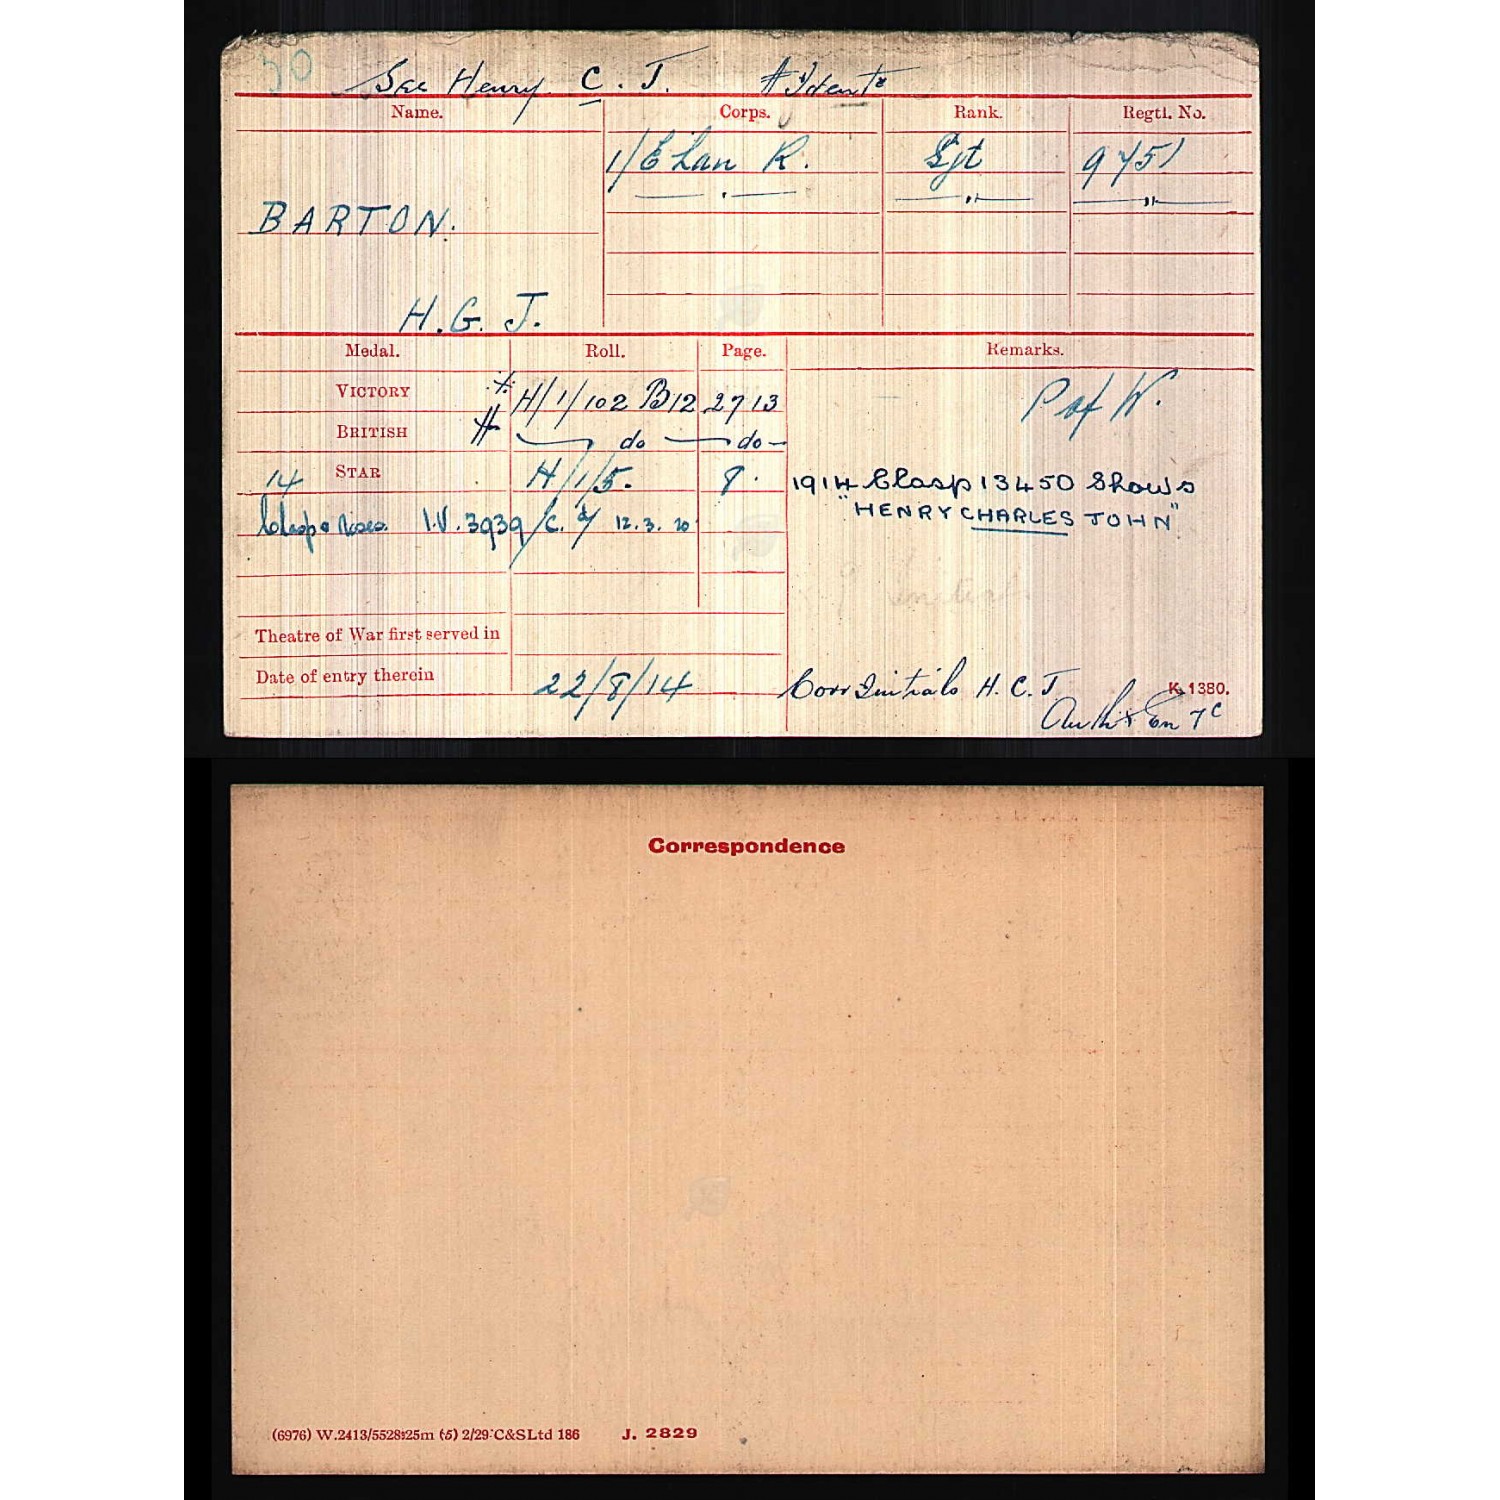 30
See Henry C. J. # Identl
Name. Corps. Rank. Regtl. No.
1/E Lan R. Sjt 9751
— " — — " — — " —
BARTON.
H. G. J.
Medal. Roll. Page. Remarks.
VICTORY # H/1/102 B12 2713 P of W.
BRITISH # — do — — do —
14 STAR H/1/5. 8. 1914 Clasp 13450 Shows
Clasp & Roses I.V. 3939/C. d/ 12.3.20 "HENRY CHARLES JOHN"
initials
Theatre of War first served in
Date of entry therein 22/8/14 Corr Initials H. C. J
K. 1380.
Auth Em 7C
Correspondence
(6976) W.2413/5528 25m (5) 2/29 C&SLtd 186 J. 2829